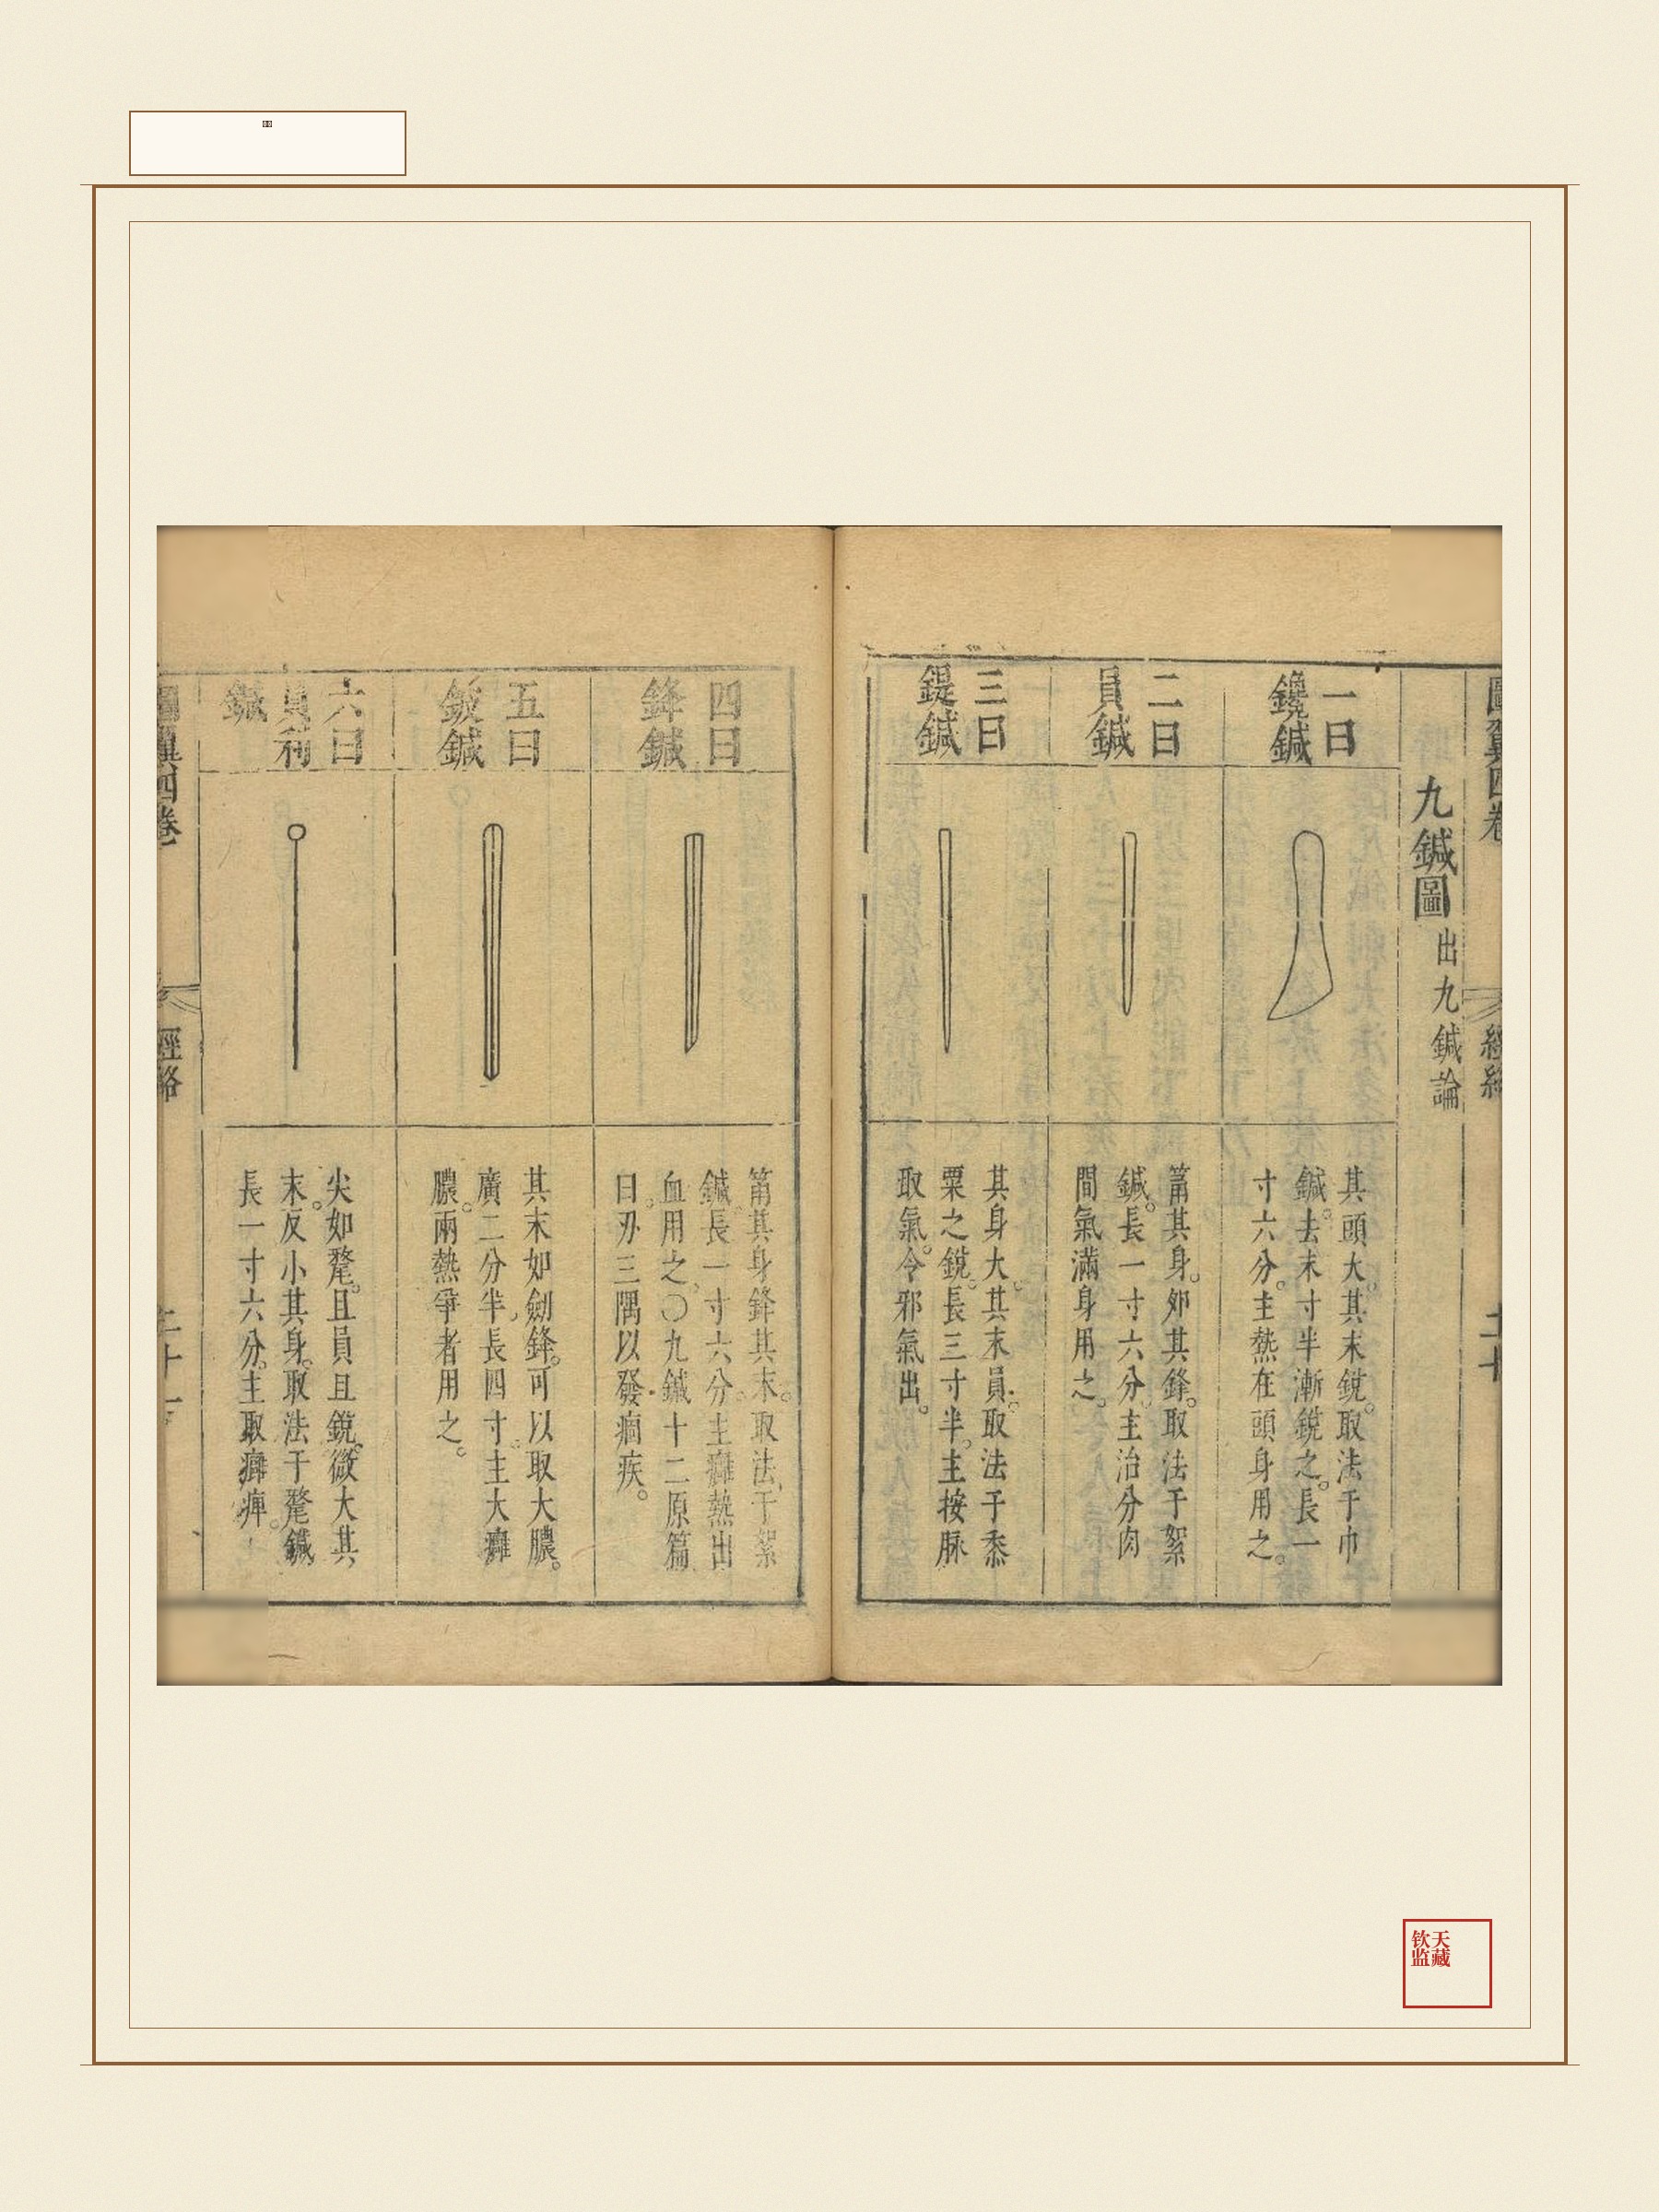 九鍼圖 出九鍼論
一曰
鑱鍼
其頭大。其末銳。取法于巾
鍼。去末寸半漸銳之。長一
寸六分。主熱在頭身用之。
二曰
員鍼
筩其身。夘其鋒。取法于絮
鍼。長一寸六分。主治分肉
間氣滿身用之。
三曰
鍉鍼
其身大。其末員。取法于黍
粟之銳。長三寸半。主按脉
取氣。令邪氣出。
四曰
鋒鍼
筩其身鋒其末。取法于絮
鍼。長一寸六分。主癰熱出
血用之。〇九鍼十二原篇
曰。刃三隅以發痼疾。
五曰
鈹鍼
其末如劍鋒。可以取大膿。
廣二分半。長四寸。主大癰
膿。兩熱爭者用之。
六曰
員利
鍼
尖如氂。且員且銳。微大其
末。反小其身。取法于氂鍼
長一寸六分。主取癰痺。
圖翼四卷
經絡
二十一
天藏
钦监